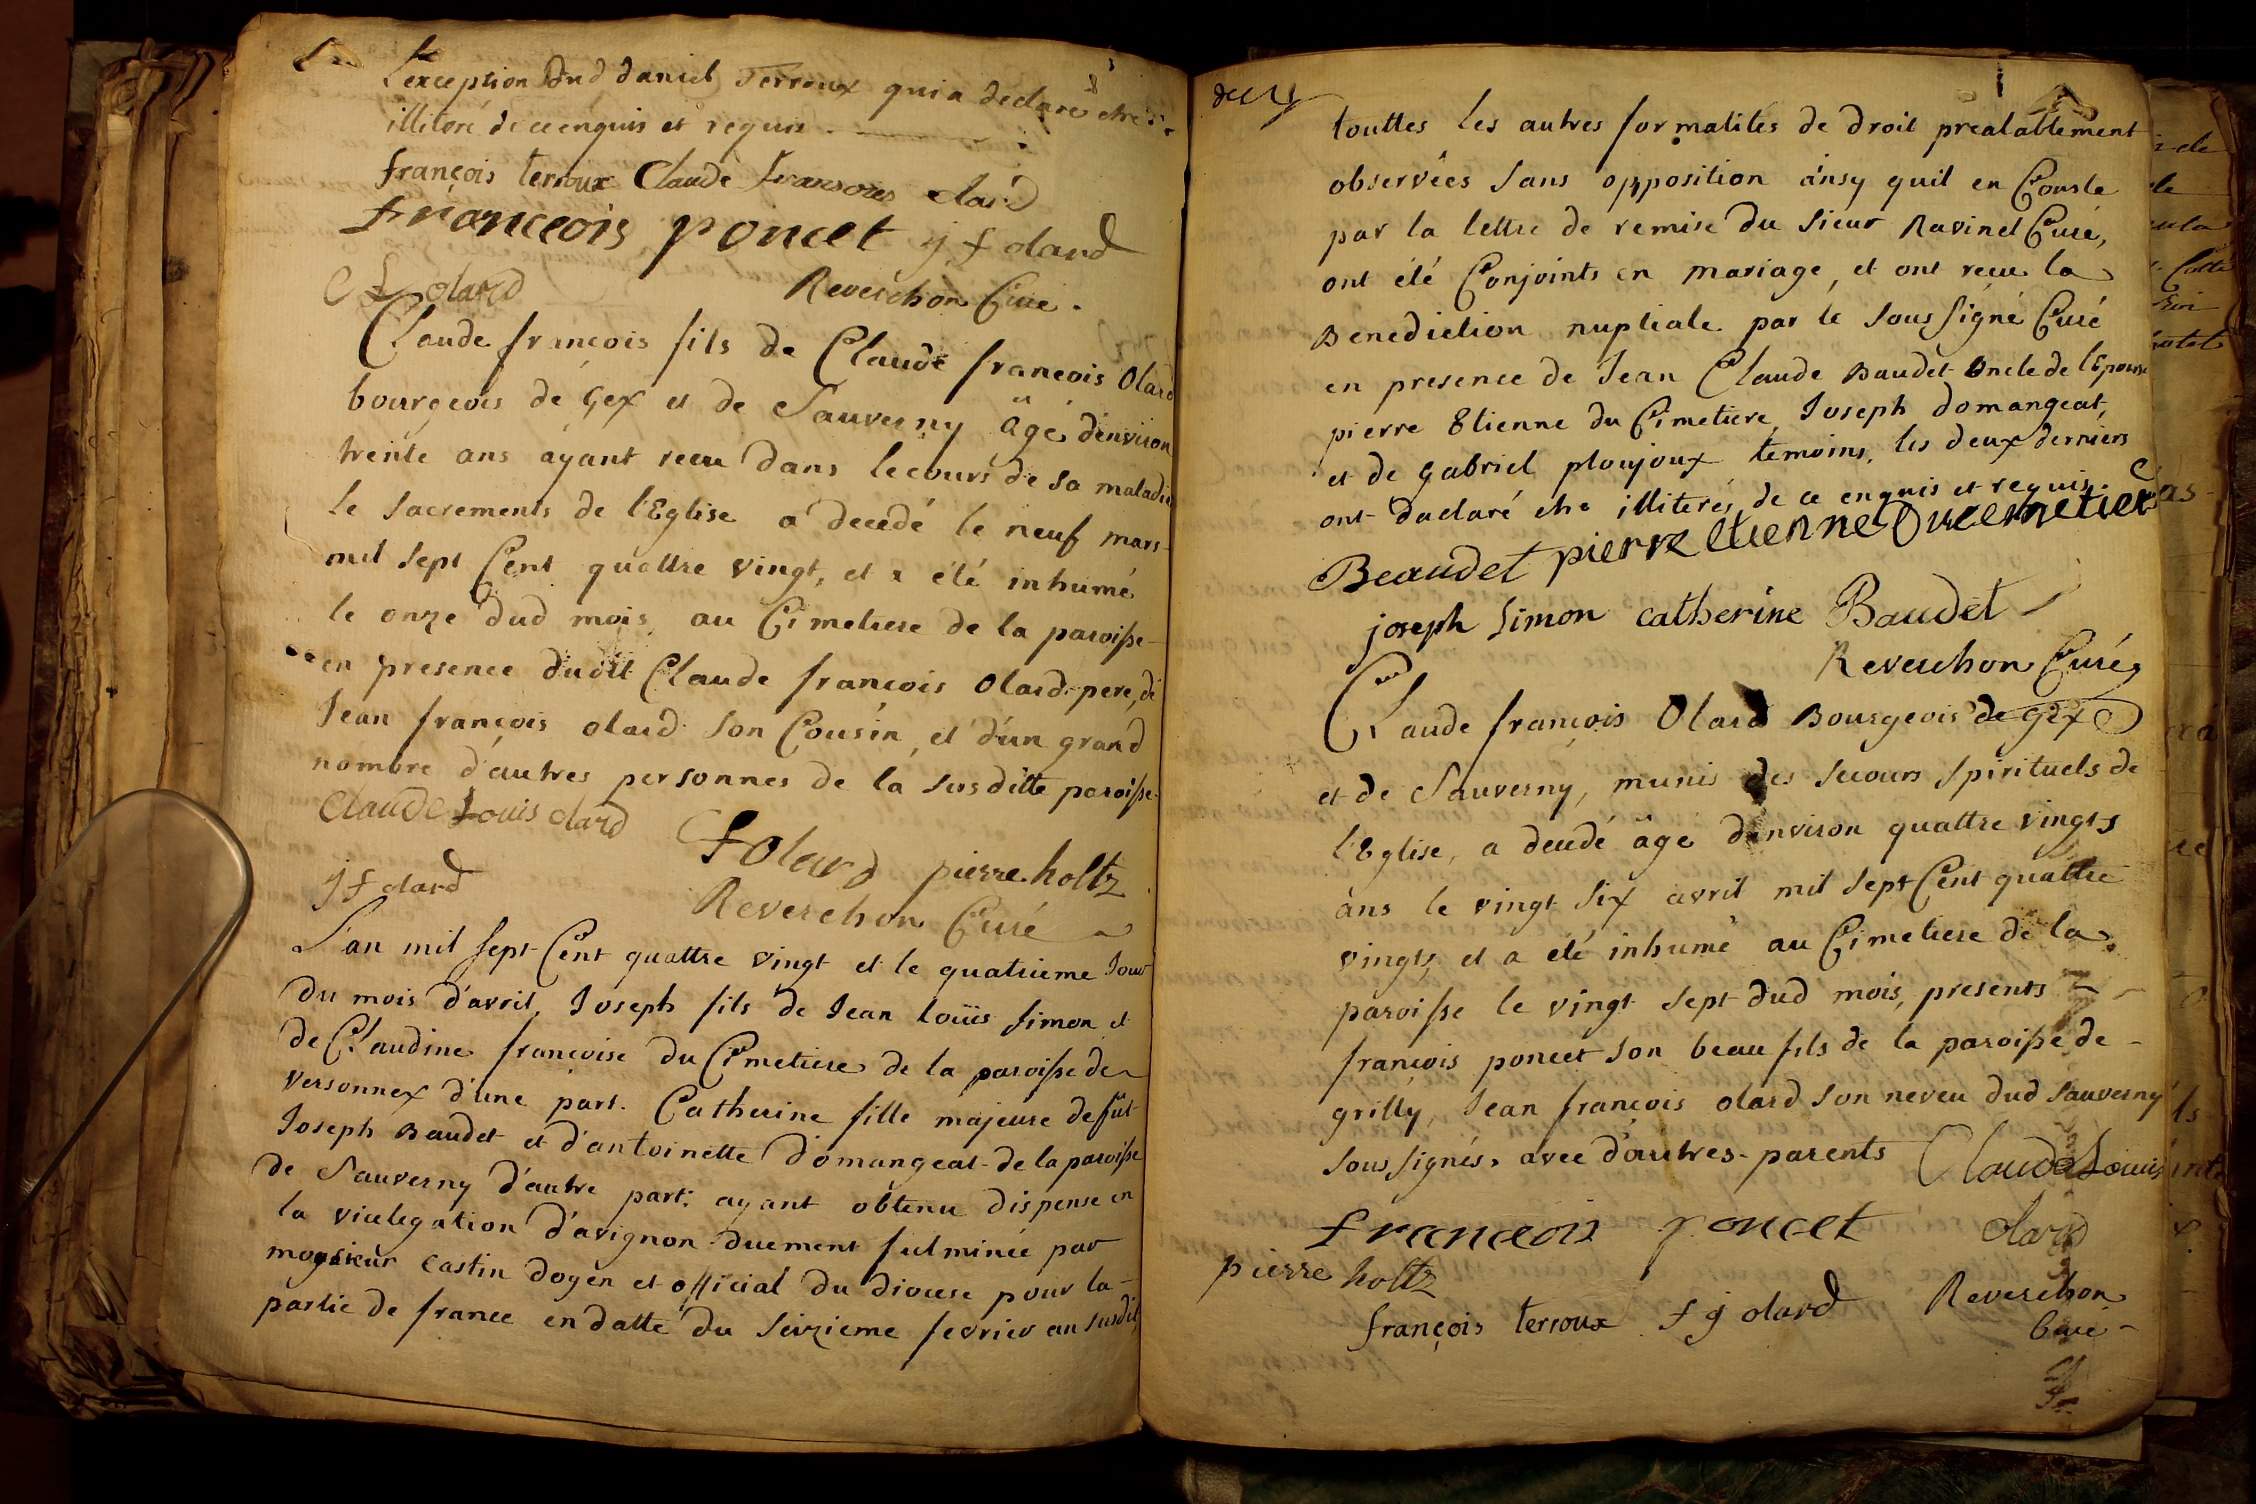 l'exception dud daniel Terroux qui a declaré etre
illiteré de ce enquis et requis.
françois terroux Claude françois olard
franceois poncet j f olard
C f olard Reverchon Curé.
Claude francois fils de Claude francois Olard
bourgeois de Gex et de Sauverny âgé d'environ
trente ans ayant recu dans le cours de sa maladie
le sacrements de l'Eglise a decedé le neuf mars
mil sept Cent quattre vingt, et a été inhumé
le onze dud mois au Cimetiere de la paroisse
en presence dudit Claude francois Olard pere, de
Jean françois olard son Cousin, et d'un grand
nombre d'autres personnes de la susditte paroisse.
Claude Louis olard C f olard pierre holtz
j f olard Reverchon Curé
L'an mil sept Cent quattre vingt et le quatrieme Jour
du mois d'avril, Joseph fils de Jean loüis simon et
de Claudine francoise du Cimetiere de la paroisse de
versonnex d'une part. Catherine fille majeure de fût
Joseph Baudet et d'antoinette domangeat de la paroisse
de Sauverny d'autre part; ayant obtenu dispense en
la vicelegation d'avignon duement fulminée par
monsieur castin doyen et official du diocese pour la
partie de france en datte du seizieme fevrier an susdit,
touttes les autres formalités de droit prealablement
observées sans opposition ainsy quil en Conste
par la lettre de remise du sieur Ravinel Curé,
ont été Conjoints en mariage, et ont recu la
Benediction nuptiale par le sous signé Curé
en presence de Jean Claude Baudet Oncle de l'Epouse
pierre Etienne du Cimetiere, Joseph domangeat,
et de Gabriel ploujoux temoins, les deux derniers
ont daclaré etre illiterés de ce enquis et requis.
Beaudet pierre etienne Ducemetier
joseph simon catherine Baudet
Reverchon Curé
Claude françois Olard Bourgeois de gex
et de Sauverny, munis des secours spirituels de
l'Eglise, a decedé âgé denviron quattre vingts
ans le vingt six avril mil sept Cent quattre
vingts et a été inhumé au Cimetiere de la
paroisse le vingt sept dud mois, presents
francois poncet son beau fils de la paroisse de
grilly, Jean francois olard son neveu dud sauverny
sous signés, avec d'autres parents Claude Louis
franceois poncet olard
pierre holtz
françois terroux f j olard Reverchon
Curé